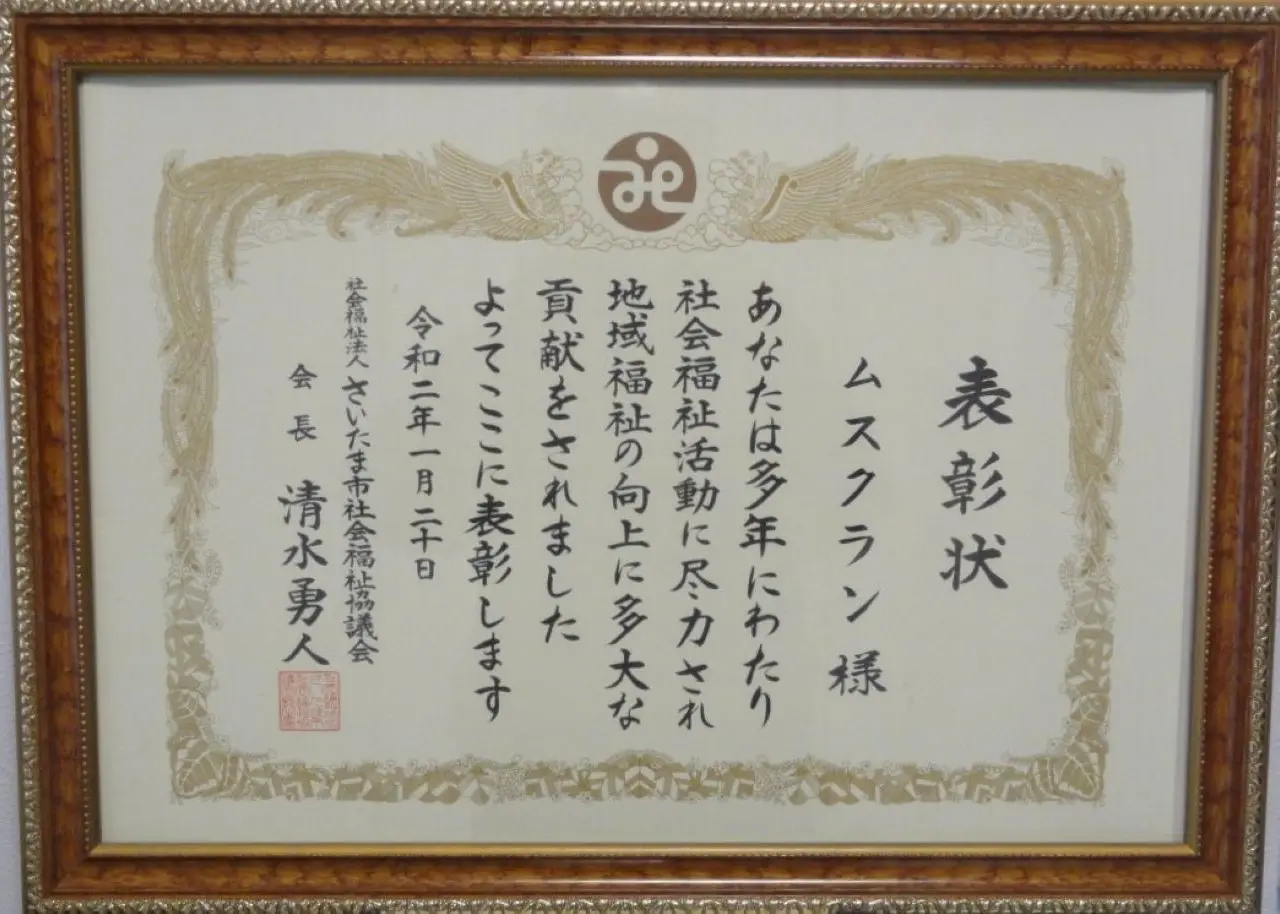 表彰状
ムスクラン 様
あなたは多年にわたり
社会福祉活動に尽力され
地域福祉の向上に多大な
貢献をされました
よってここに表彰します
令和二年一月二十日
社会福祉法人 さいたま市社会福祉協議会
会長 清水勇人